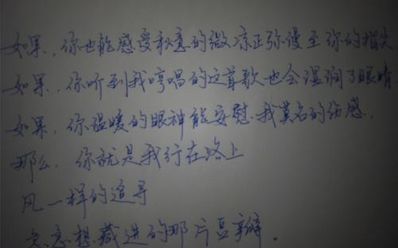 如果,你也能感受秋意的微凉正弥漫至你的指尖
如果,你听到我哼唱的这首歌也会湿润了眼睛
如果,你温暖的眼神能安慰我莫名的伤感,
那么,你就是我行在路上
风一样的追寻
想藏进的那片豆瓣.